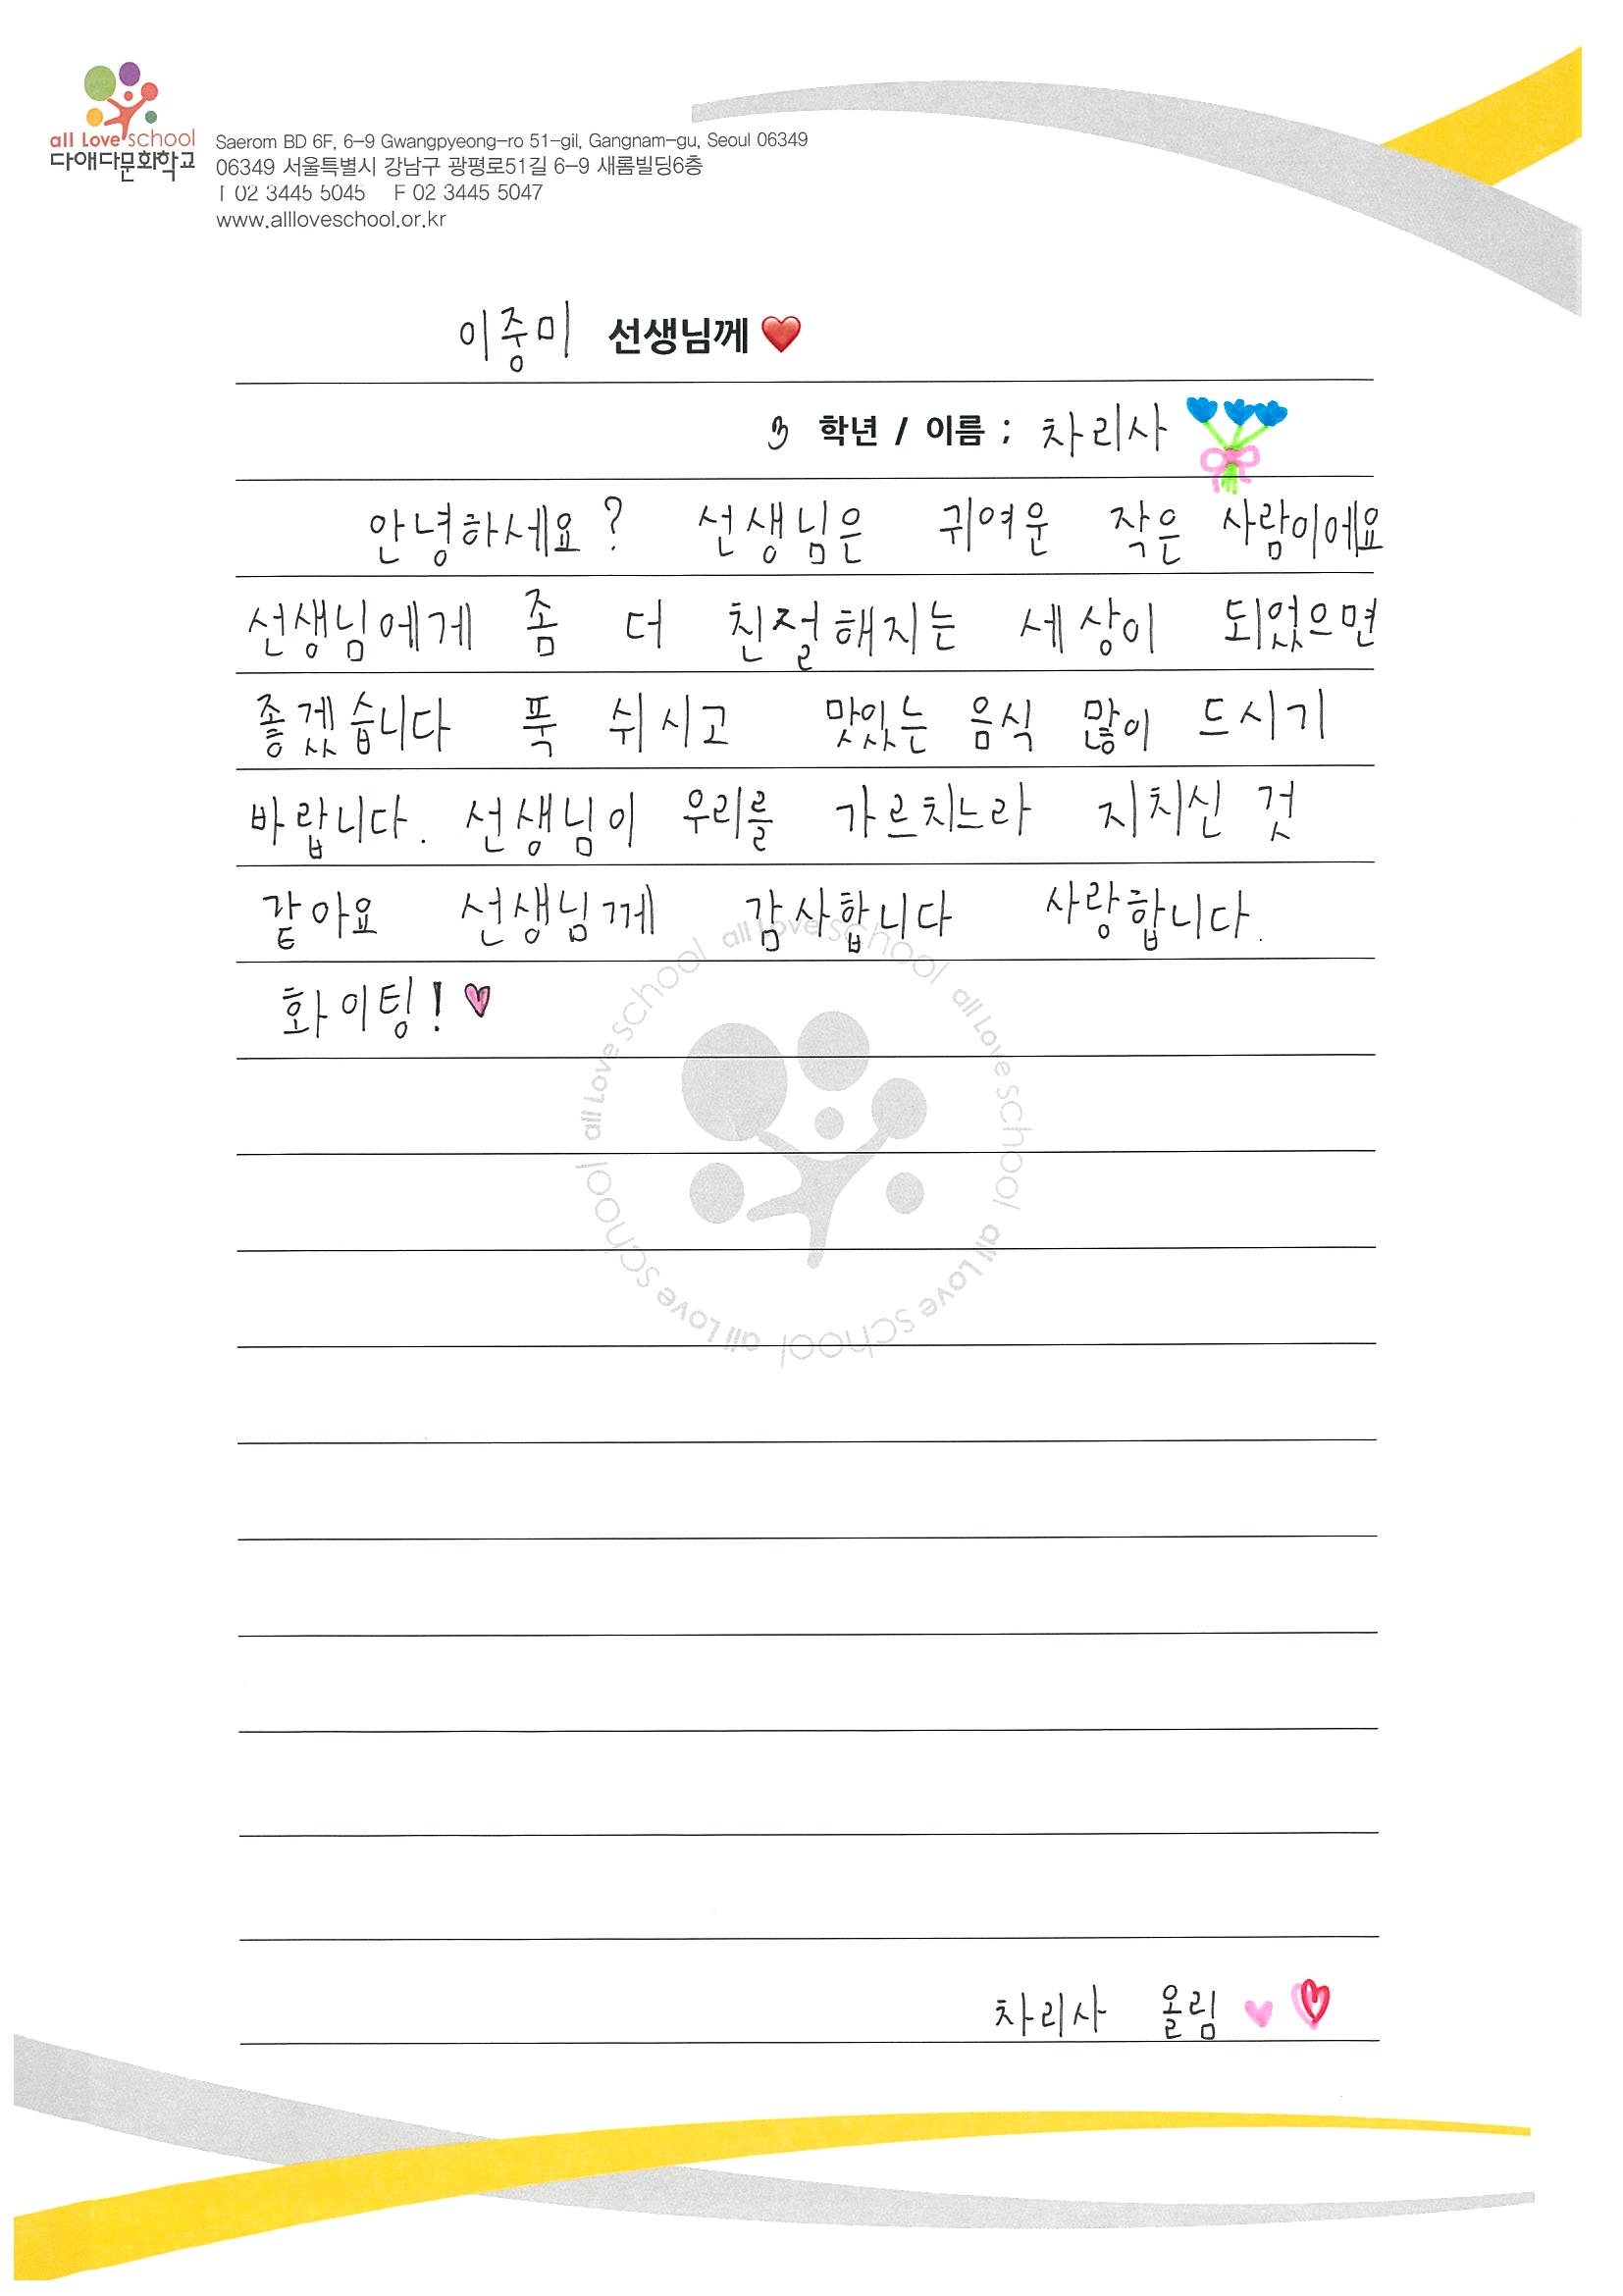 all Love school
다애다문화학교
Saerom BD 6F, 6-9 Gwangpyeong-ro 51-gil, Gangnam-gu, Seoul 06349
06349 서울특별시 강남구 광평로51길 6-9 새롬빌딩6층
T 02 3445 5045 F 02 3445 5047
www.allloveschool.or.kr
이중미 선생님께 ❤
3 학년 / 이름 ; 차리사
안녕하세요? 선생님은 귀여운 작은 사람이에요
선생님에게 좀 더 친절해지는 세상이 되었으면
좋겠습니다 푹 쉬시고 맛있는 음식 많이 드시기
바랍니다. 선생님이 우리를 가르치느라 지치신 것
같아요 선생님께 감사합니다 사랑합니다.
화이팅! ♥
all Love school all Love school all Love school all Love school all Love school
차리사 올림